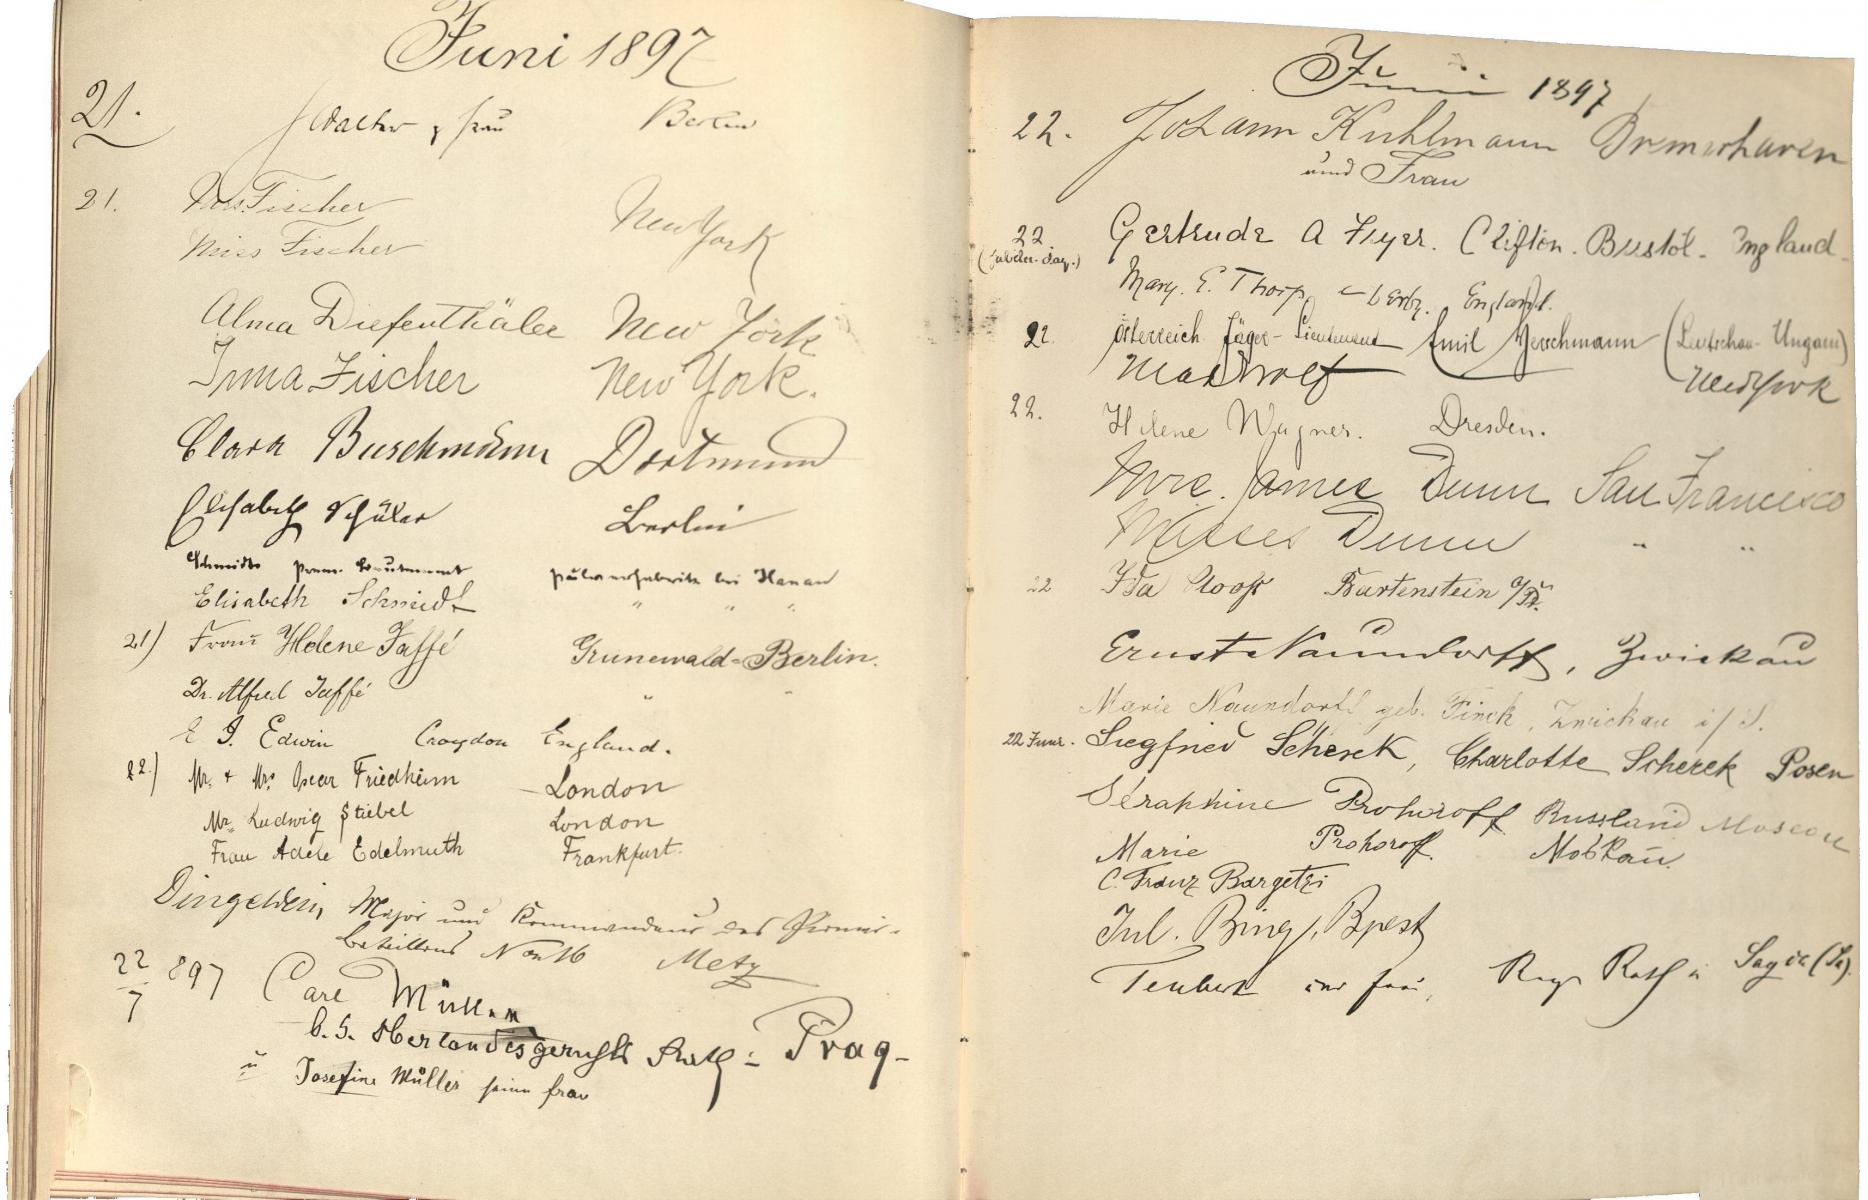 Juni 1897
21. Walter & Frau Berlin
21. Mrs. Fischer New York
Miss Fischer
Alma Diefenthäler New York
Irma Fischer New York.
Clara Buschmann Dortmund
Elisabeth Schüler Berlin
Schmidt Prem. Lieutenant Pulverfabrik bei Hanau
Elisabeth Schmidt " " "
21) Frau Helene Jaffé Grunewald-Berlin.
Dr. Alfred Jaffé " "
E J. Edwin Croydon England.
22.) Mr. + Mrs Oscar Friedheim London
Mr. Ludwig Stiebel London
Frau Adele Edelmuth Frankfurt.
Dingelwein, Major und Kommandeur des Pionier-
bataillons No 16 Metz
22/7 897 Carl Müller
k. k. Oberlandesgerichts Rath = Prag-
u Josefine Müller seine Frau
Juni 1897
22. Johann Kuhlmann Bremerhaven
und Frau
22 Gertrude A Fryer. Clifton. Bristol. England.
(Jubilee-Day.)
Mary. E. Thorp Derby. England.
22. österreich. Jäger-Lieutenant Emil (Leutschau-Ungarn)
Max Wolf New York
22. Helene Wagner. Dresden.
Mrs. James Dunn San Francisco
Misses Dunn " "
22 Ida Bartenstein O/Pr.
Ernst Naundorff, Zwickau
Marie Naundorff geb. Finck, Zwickau i/S.
22 Juni. Siegfried Scherek, Charlotte Scherek Posen
Séraphine Prohoroff Russland Moscou
Marie Prohoroff. Moskau.
C. Franz Bargetzi
Jul. Bing, Bpest
Teubert und Frau, Rath